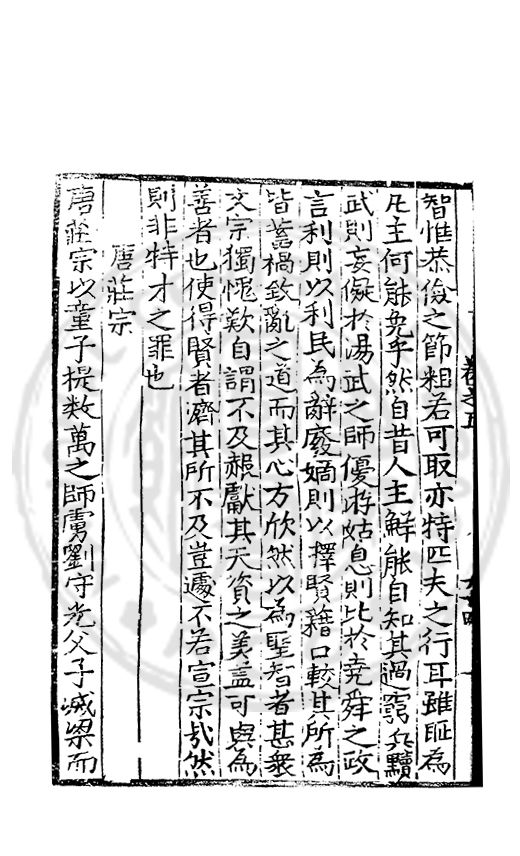 智惟恭儉之節粗若可取亦特匹夫之行耳雖耻為
凡主何能免乎然自昔人主鮮能自知其過窮兵黷
武則妄儗於湯武之師優游姑息則比於堯舜之政
言利則以利民為辭廢嫡則以擇賢籍口較其所為
皆蓄禍斂亂之道而其心方欣然以為聖智者甚衆
文宗獨愧歎自謂不及赧獻其天資之美蓋可與為
善者也使得賢者濟其所不及豈遽不若宣宗㢤然
則非特才之罪也
唐莊宗
唐莊宗以童子提數萬之師虜劉守光父子滅梁而
卷之五